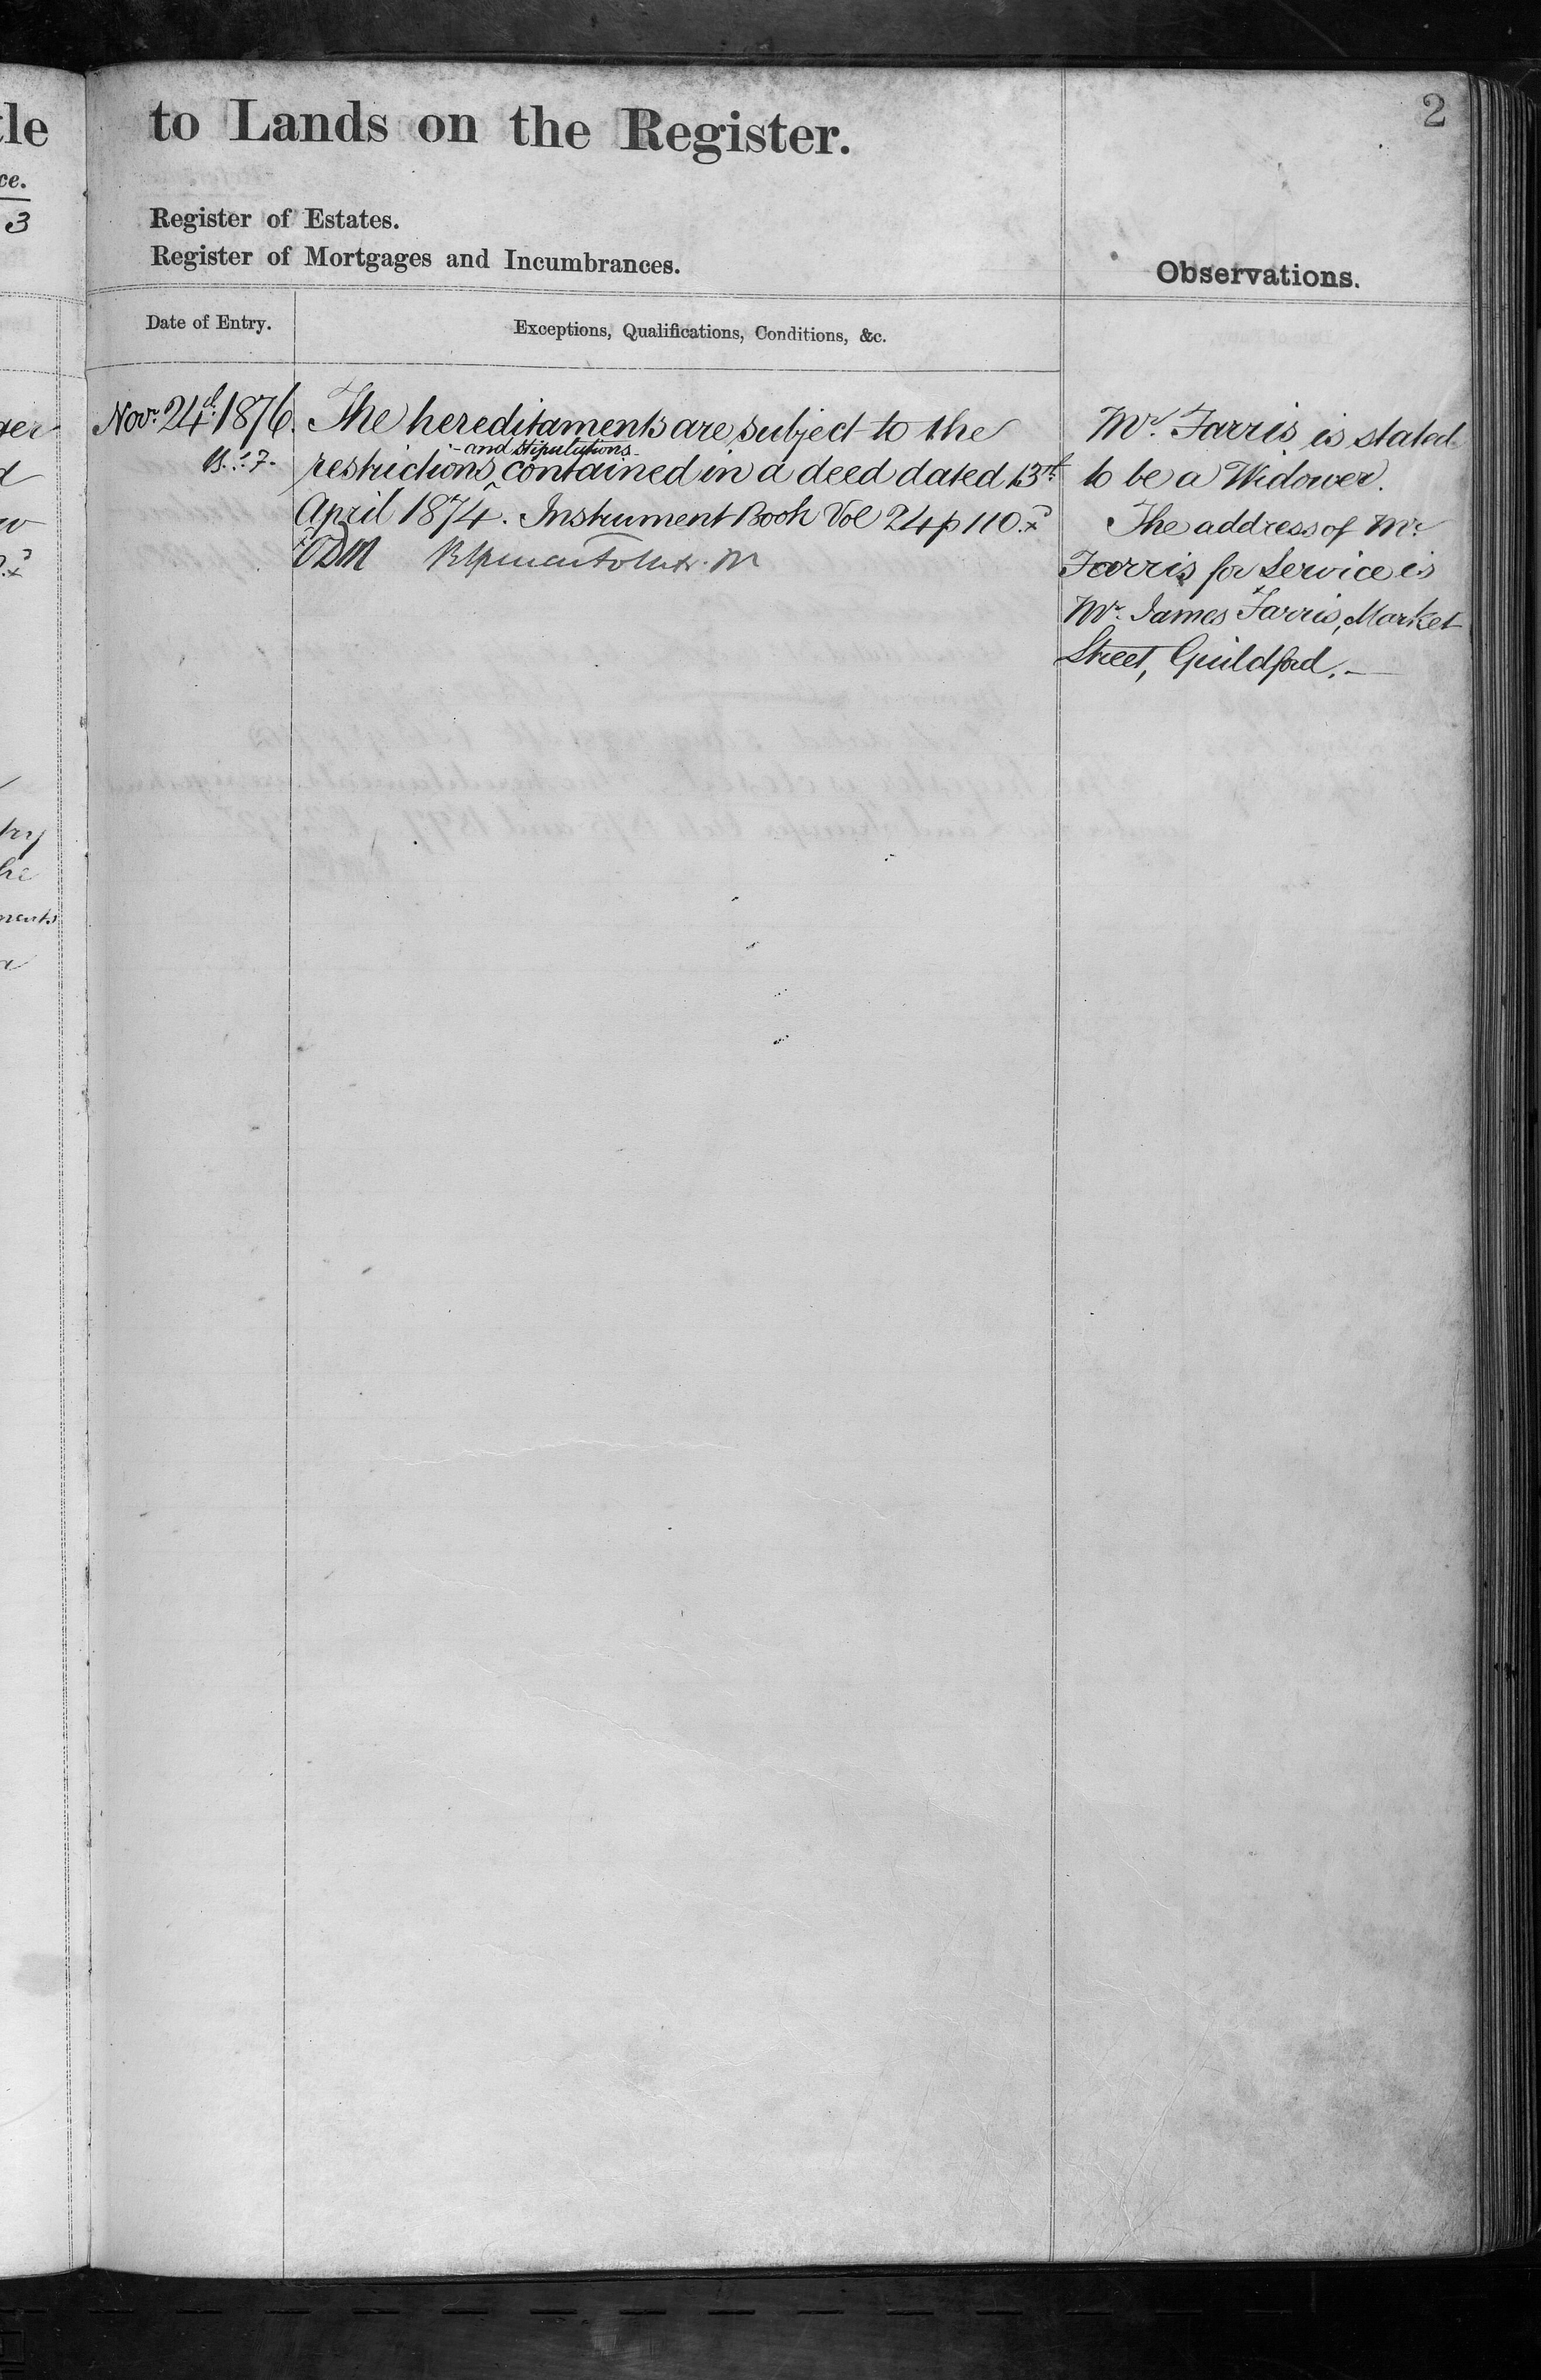 tle
ce.
3
to Lands on the Register.
2
Register of Estates.
Register of Mortgages and Incumbrances.
Observations.
Date of Entry.
Exceptions, Qualifications, Conditions, &c.
Novr. 24th. 1876.
The hereditaments are subject to the
and stipulations
restrictions ^ contained in a deed dated 13th
April 1874. Instrument Book Vol 24 p 110.
Mr. Farris is stated
to be a Widower.
The address of Mr.
Farris for Service is
Mr. James Farris, Market
Street, Guildford.—